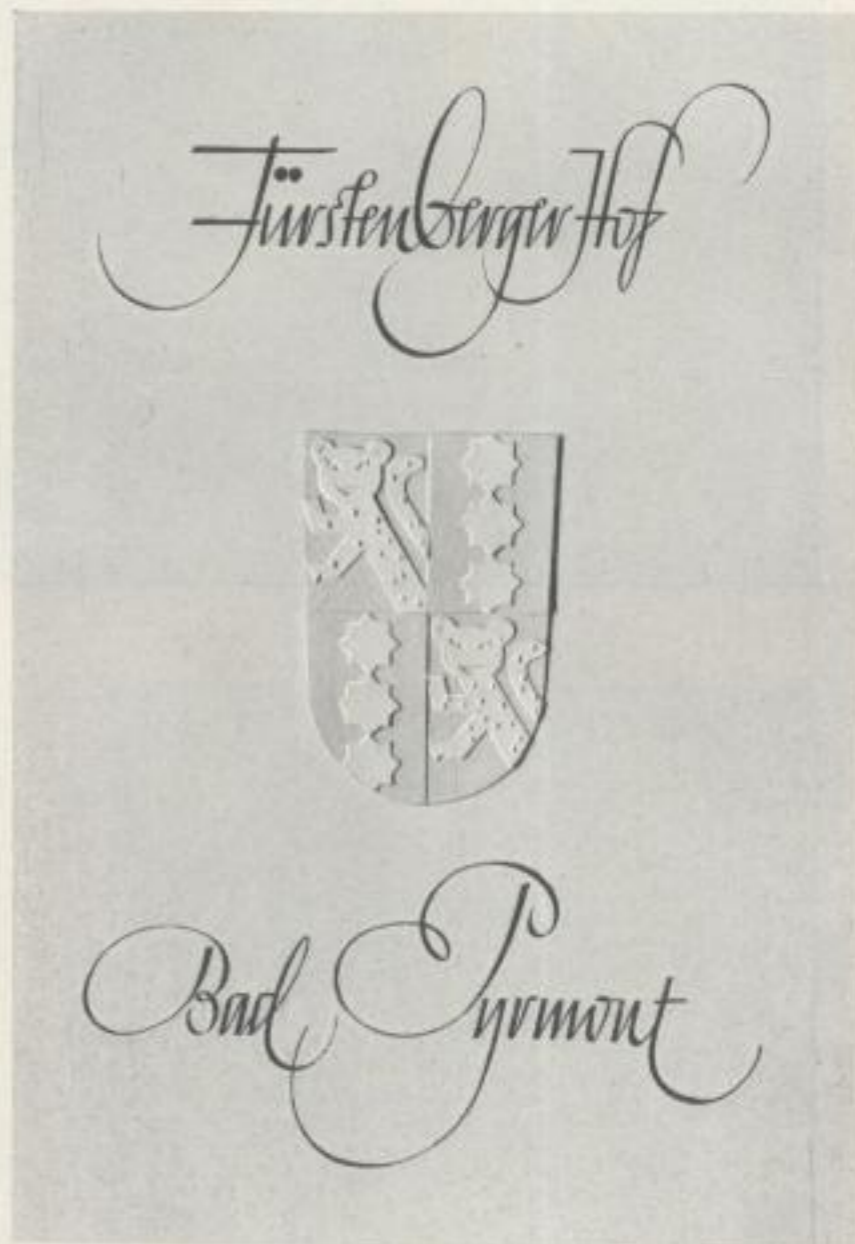 Fürstenberger Hof
Bad Pyrmont